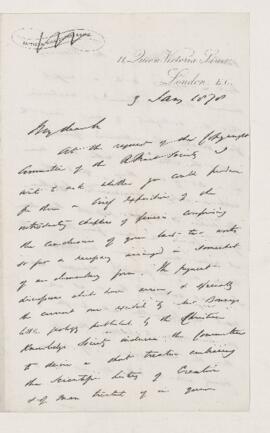 11, Queen Victoria Street,
London, E.C.
3 Jany 1878
My dear
At the request of the Copyright
Committee of the Society I
write to ask whether you could produce
for them a brief exposition of the
introductory chapters of Genesis comprising
the conclusions of your last two works
so far as necessary arranged in a somewhat
of an elementary form. The
discussions which have arisen, &
the current one by
little published by the Christian
Knowledge Society the Committee
to desire a short treatise embracing
the Scientific history of Creation
& of Man in